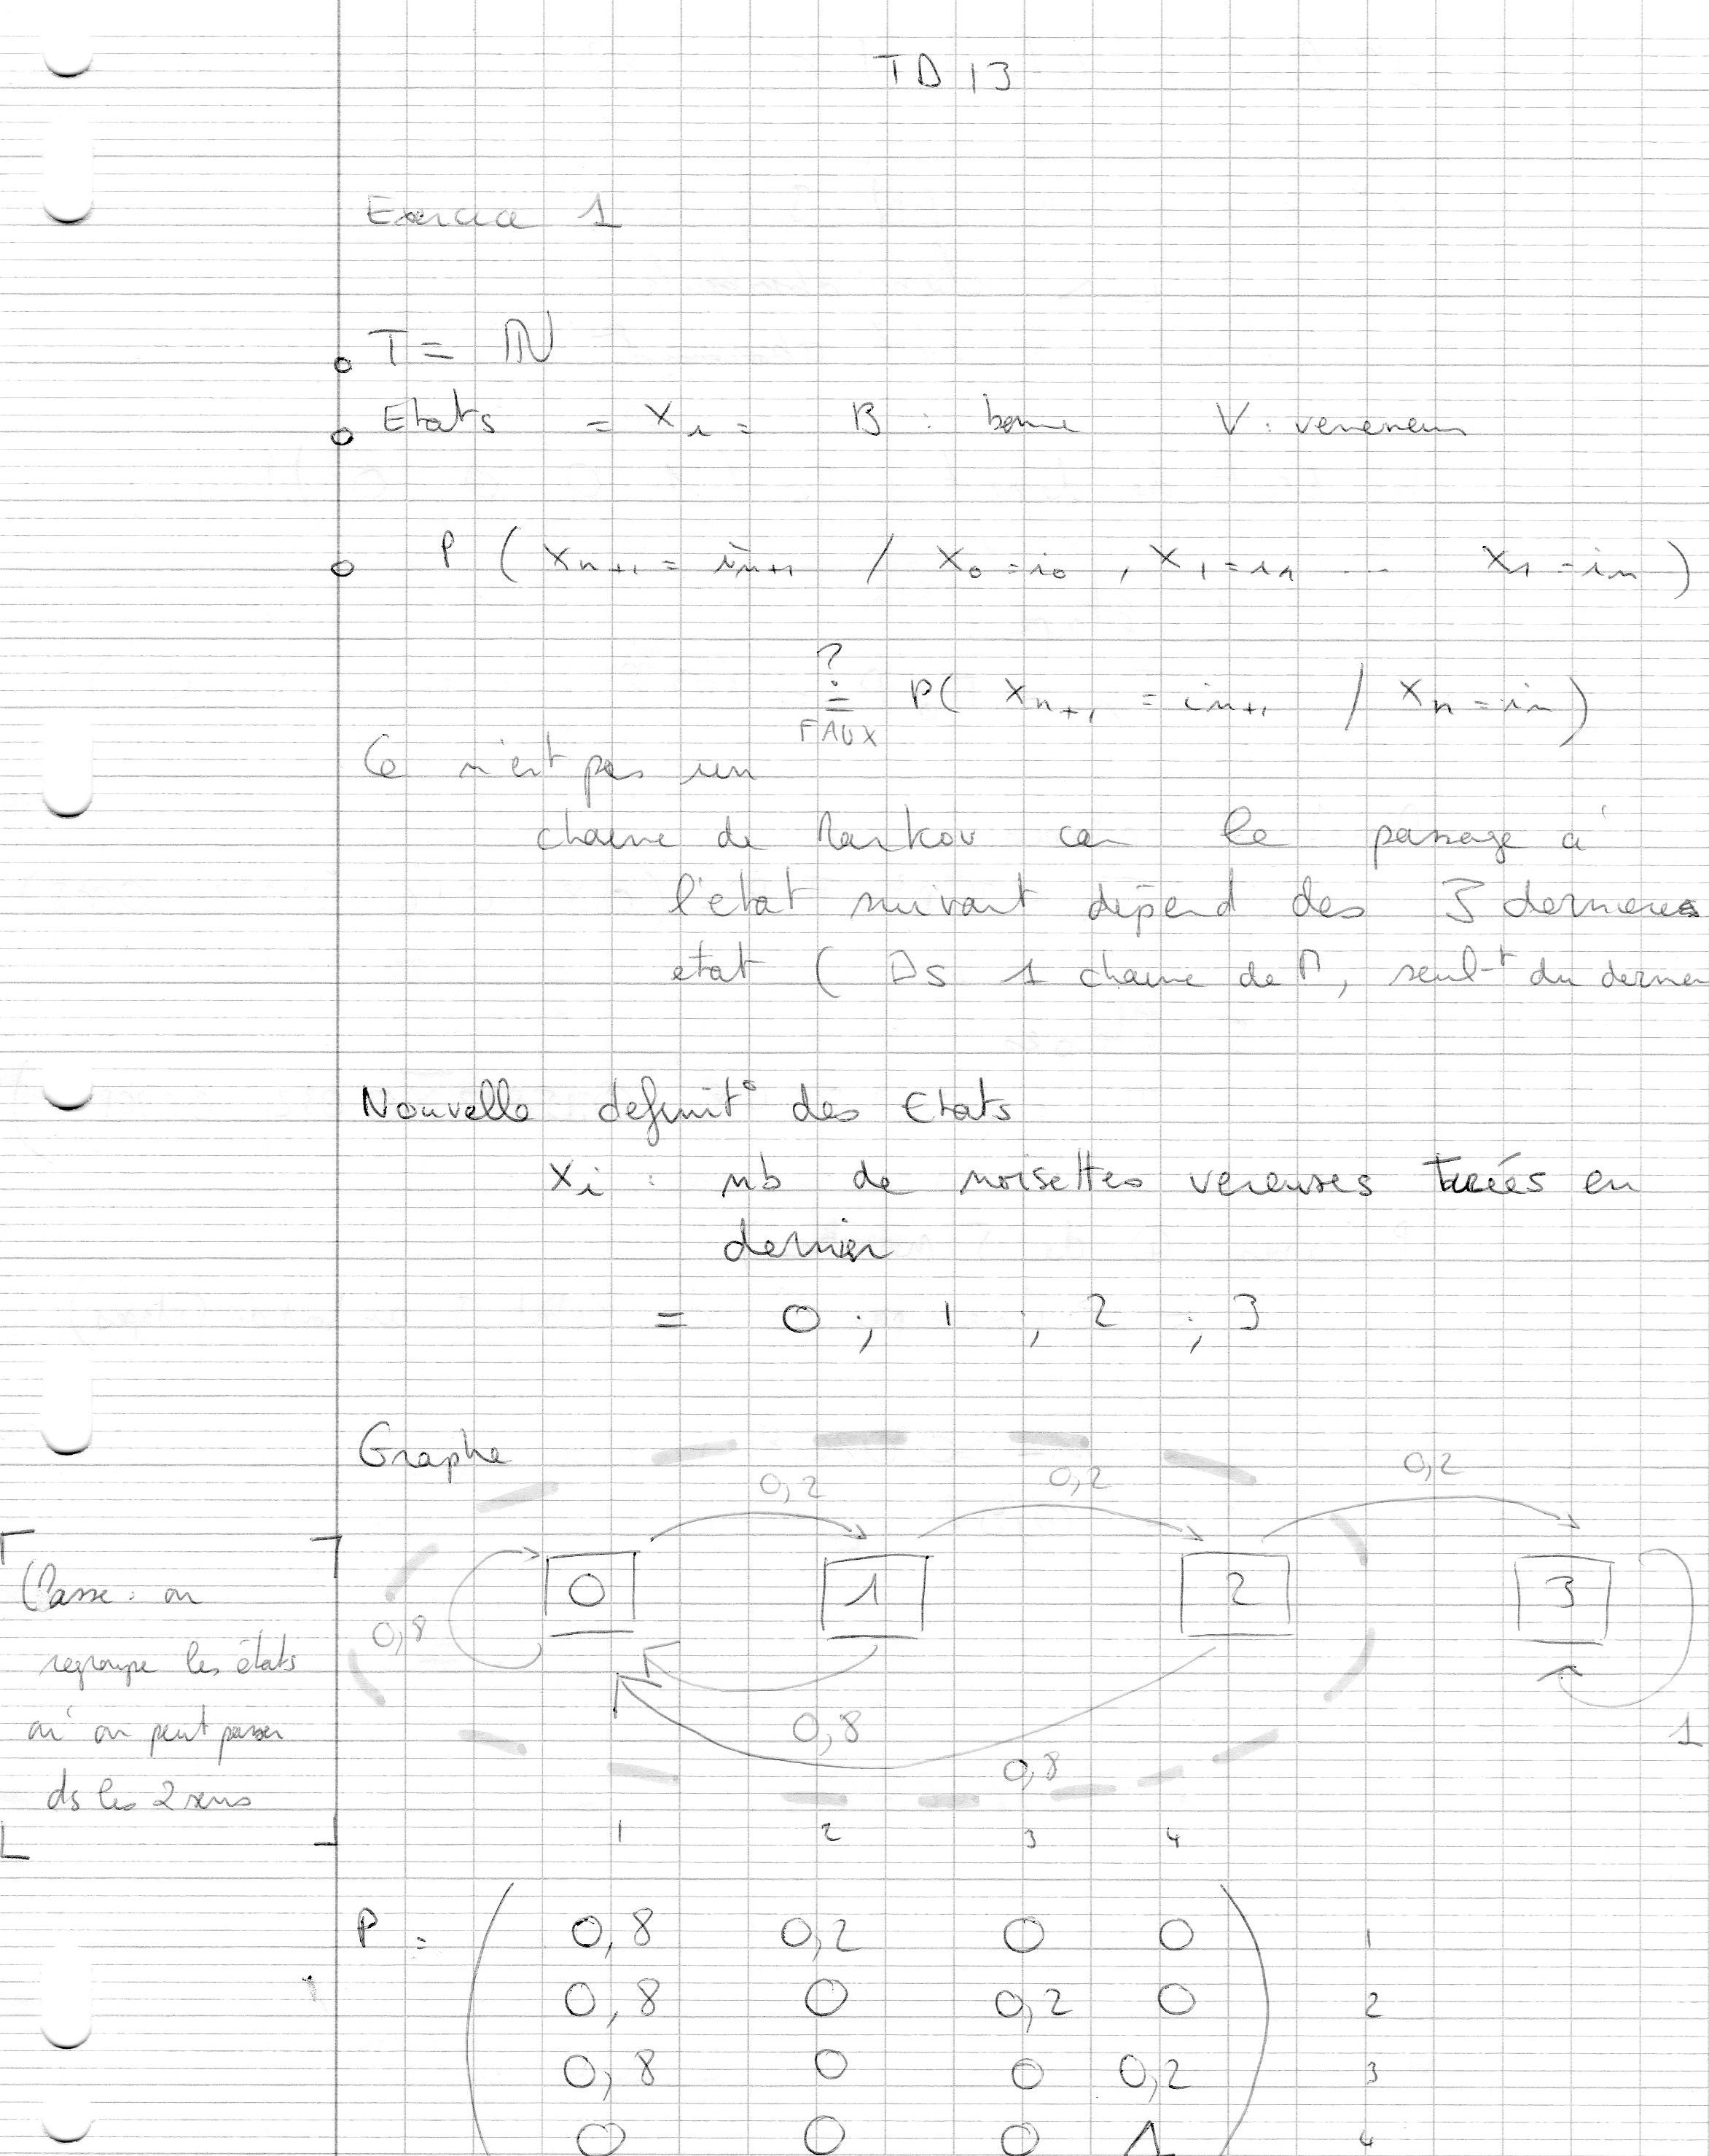 TD 13
Exercice 1
T = ℕ
Etats = Xi = B : bonne V : vereneuse
P ( Xn+1 = in+1 / X0 = i0 , X1 = i1 ... X1 = in )
?
= P( Xn+1 = in+1 / Xn = in )
FAUX
Ce n'est pas un
chaine de Markov car le passage à
l'etat suivant dépend des 3 dernieres
etat ( Ds 1 chaine de M, seul-t du dernier
Nouvelle definit° des Etats
Xi : nb de noisettes vereuses tirées en
dernier
= 0 ; 1 ; 2 ; 3
Graphe
0,2 0,2 0,2
0 1 2 3
0,8
0,8
0,8
1
Classe : on
regroupe les états
où on peut passer
ds les 2 sens
1 2 3 4
P = 0,8 0,2 0 0 1
0,8 0 0,2 0 2
0,8 0 0 0,2 3
0 0 0 1 4